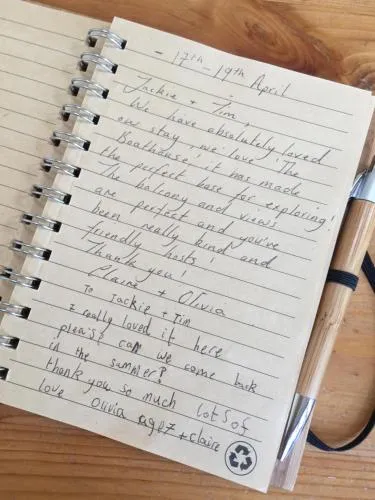 - 17th - 19th April
Jackie + Tim,
We have absolutely loved
our stay, we love 'The
Boathouse' it has made
the perfect base for exploring!
The balcony and views
are perfect and you've
been really kind and
friendly hosts!
Thank you!
Claire + Olivia
To Jackie + Tim
I really loved it here
pleais? cam we come back
in the summer?
thank you so much lots of
love Olivia age 7 + Claire